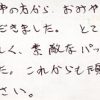 事の方から、おみや
だきました。とて
しく、素敵なパッ
た。これからも頑
さい。